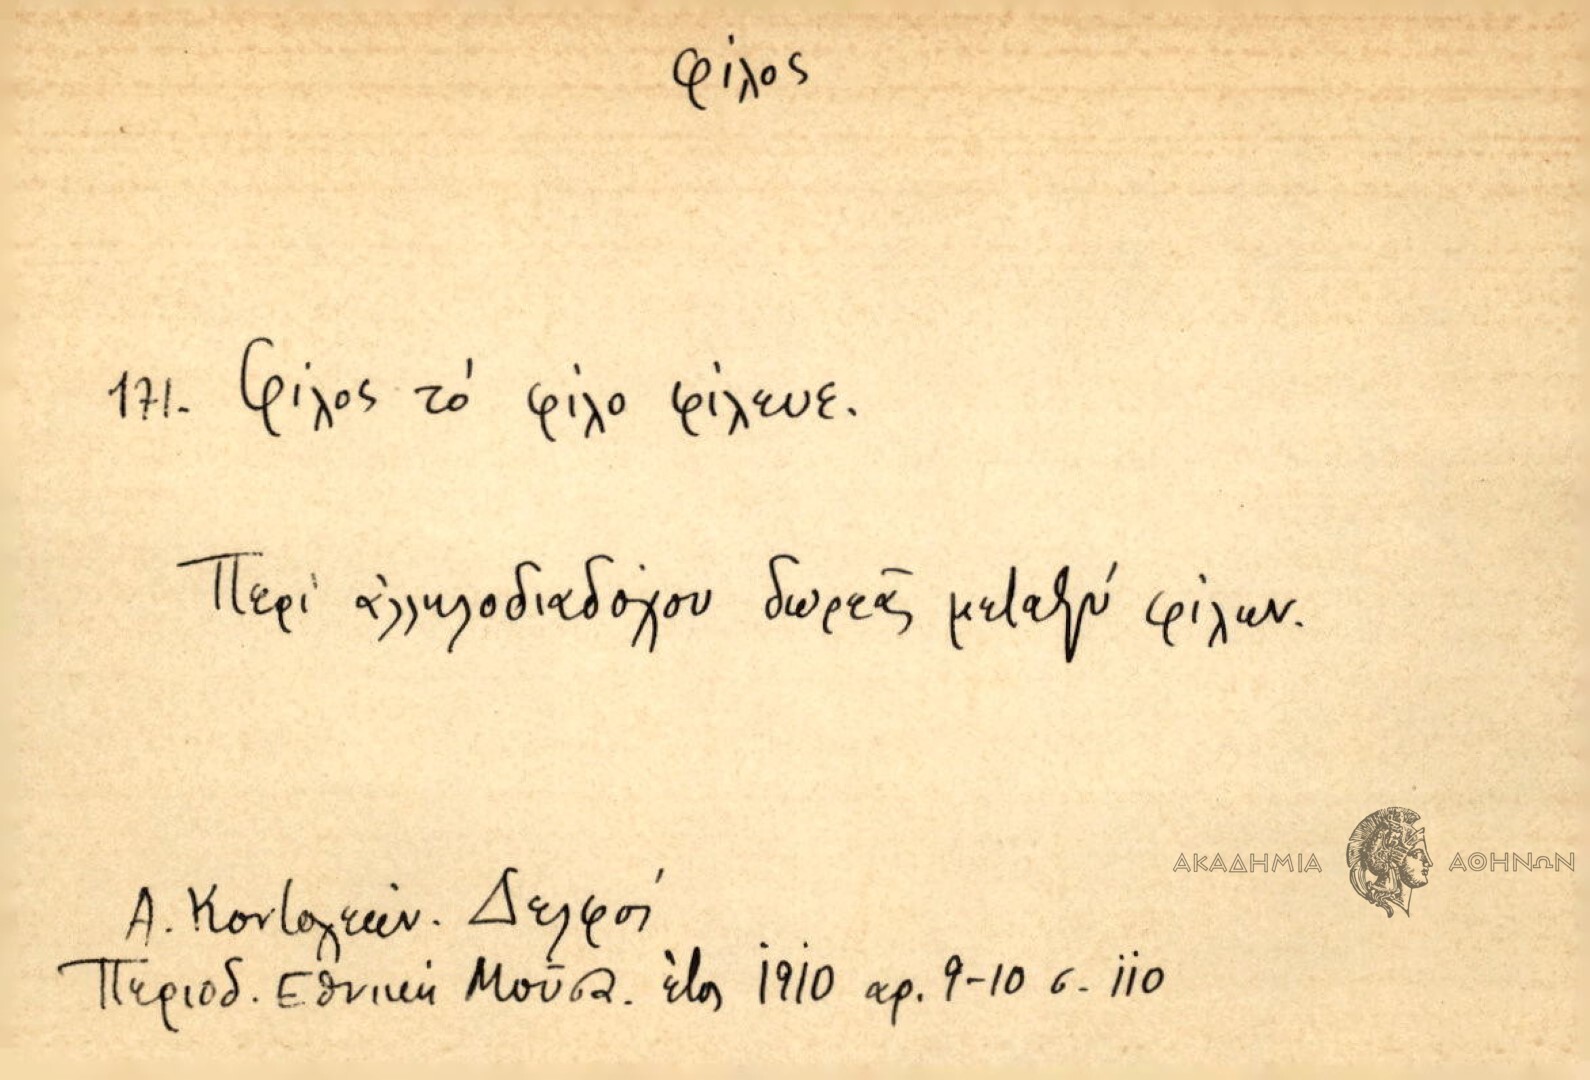 φίλος
171. Φίλος τό φίλο φίλευε.
Περί ἀλληλοδιαδόχου δωρεᾶς μεταξύ φίλων.
ΑΚΑΔΗΜΙΑ ΑΘΗΝΩΝ
Α. Κοντολέων. Δελφοί
Περιοδ. Εθνική Μοῦσα. ἔτος 1910 αρ. 9-10 σ. 110